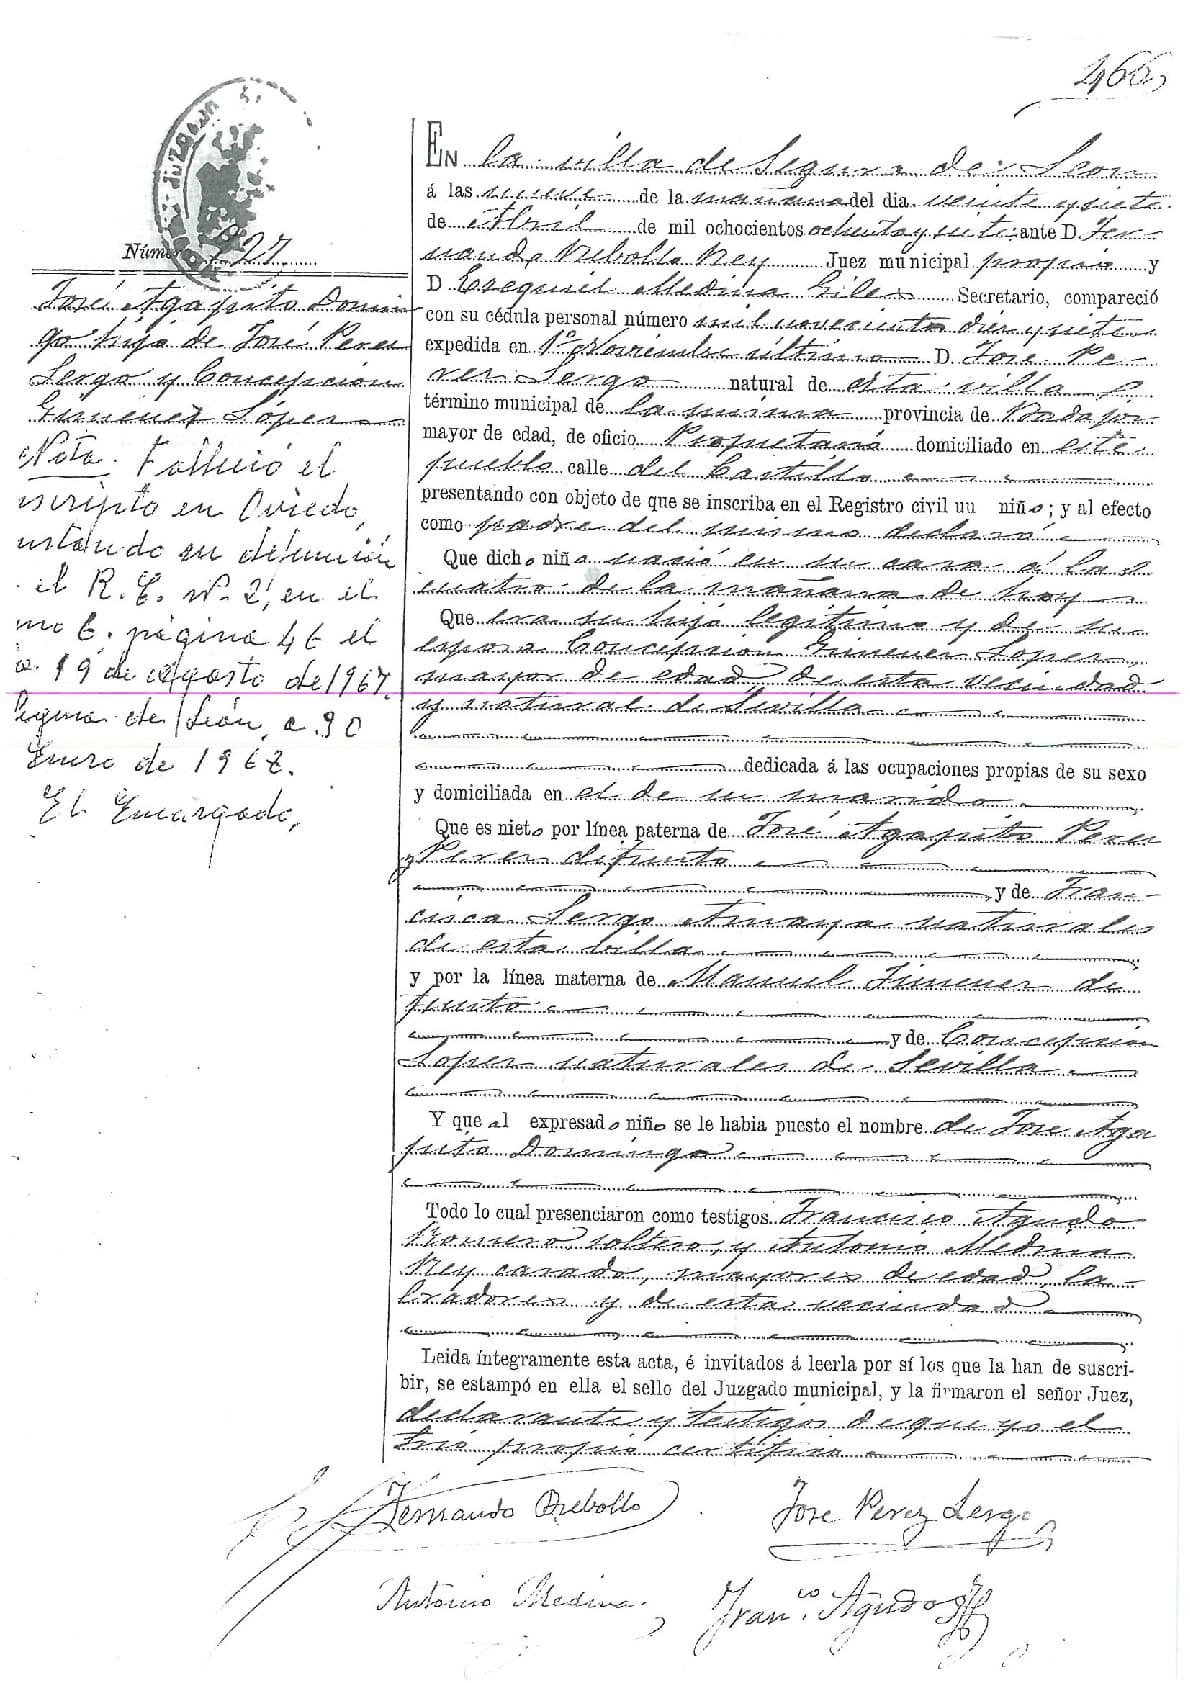 466
JUZGADO
Número 927
José Agapito Domin
go hijo de José Perez
Lergo y Concepción
Gimenez López
Nota. Falleció el
inscripto en Oviedo,
constando su defunción
el R. C. nº 2, en el
tomo 6, página 46 el
19 de Agosto de 1967.
Segura de León, a 30
Enero de 1968.
El Encargado,
EN la villa de Segura de Leon
á las nueve de la mañana del dia veinte y siete
de Abril de mil ochocientos ochenta y siete ante D. Fer-
nando Rebollo Rey Juez municipal propio y
D Ezequiel Medina Giles Secretario, compareció
con su cédula personal número mil novecientos diez y siete
expedida en 1º Noviembre último D. José Pe-
rez Lergo natural de esta villa
término municipal de la misma provincia de Badajoz
mayor de edad, de oficio Propietario domiciliado en este
pueblo calle del Castillo
presentando con objeto de que se inscriba en el Registro civil un niño; y al efecto
como padre del mismo declaró
Que dicho niño nasió en su casa á las
cuatro de la mañana de hoy
Que era su hijo legitimo y de su
esposa Concepción Gimenez Lopez
mayor de edad, de esta vecindad
y natural de Sevilla
dedicada á las ocupaciones propias de su sexo
y domiciliada en el de su marido
Que es nieto por línea paterna de José Agapito Perez
y Perez difunto
y de Fran-
cisca Lergo Amaya naturales
de esta villa
y por la línea materna de Manuel Jimenez di
funto
y de Concepción
Lopez naturales de Sevilla
Y que al expresado niño se le habia puesto el nombre de Jose Aga
pito Domingo
Todo lo cual presenciaron como testigos Francisco Agudo
Romero, soltero, y Antonio Medina
Rey casado, mayores de edad, la-
bradores y de esta vecindad
Leida íntegramente esta acta, é invitados á leerla por sí los que la han de suscri-
bir, se estampó en ella el sello del Juzgado municipal, y la firmaron el señor Juez,
declarante y testigos de que yo el
Srio propio certifico
Fernando Rebollo
Jose Perez Lergo
Antonio Medina.
Fran.co Agudo